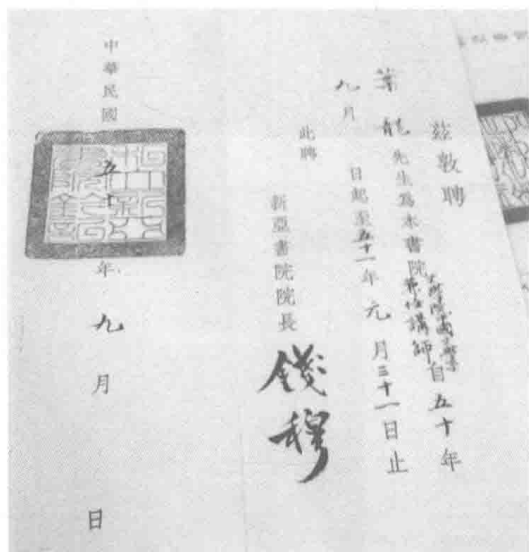 茲敦聘
葉龍先生為本書院
兼任講師自五十年
九月 日起至五十一年元月三十一日止
此聘
新亞書院院長
錢穆
中華民國五十年九月 日